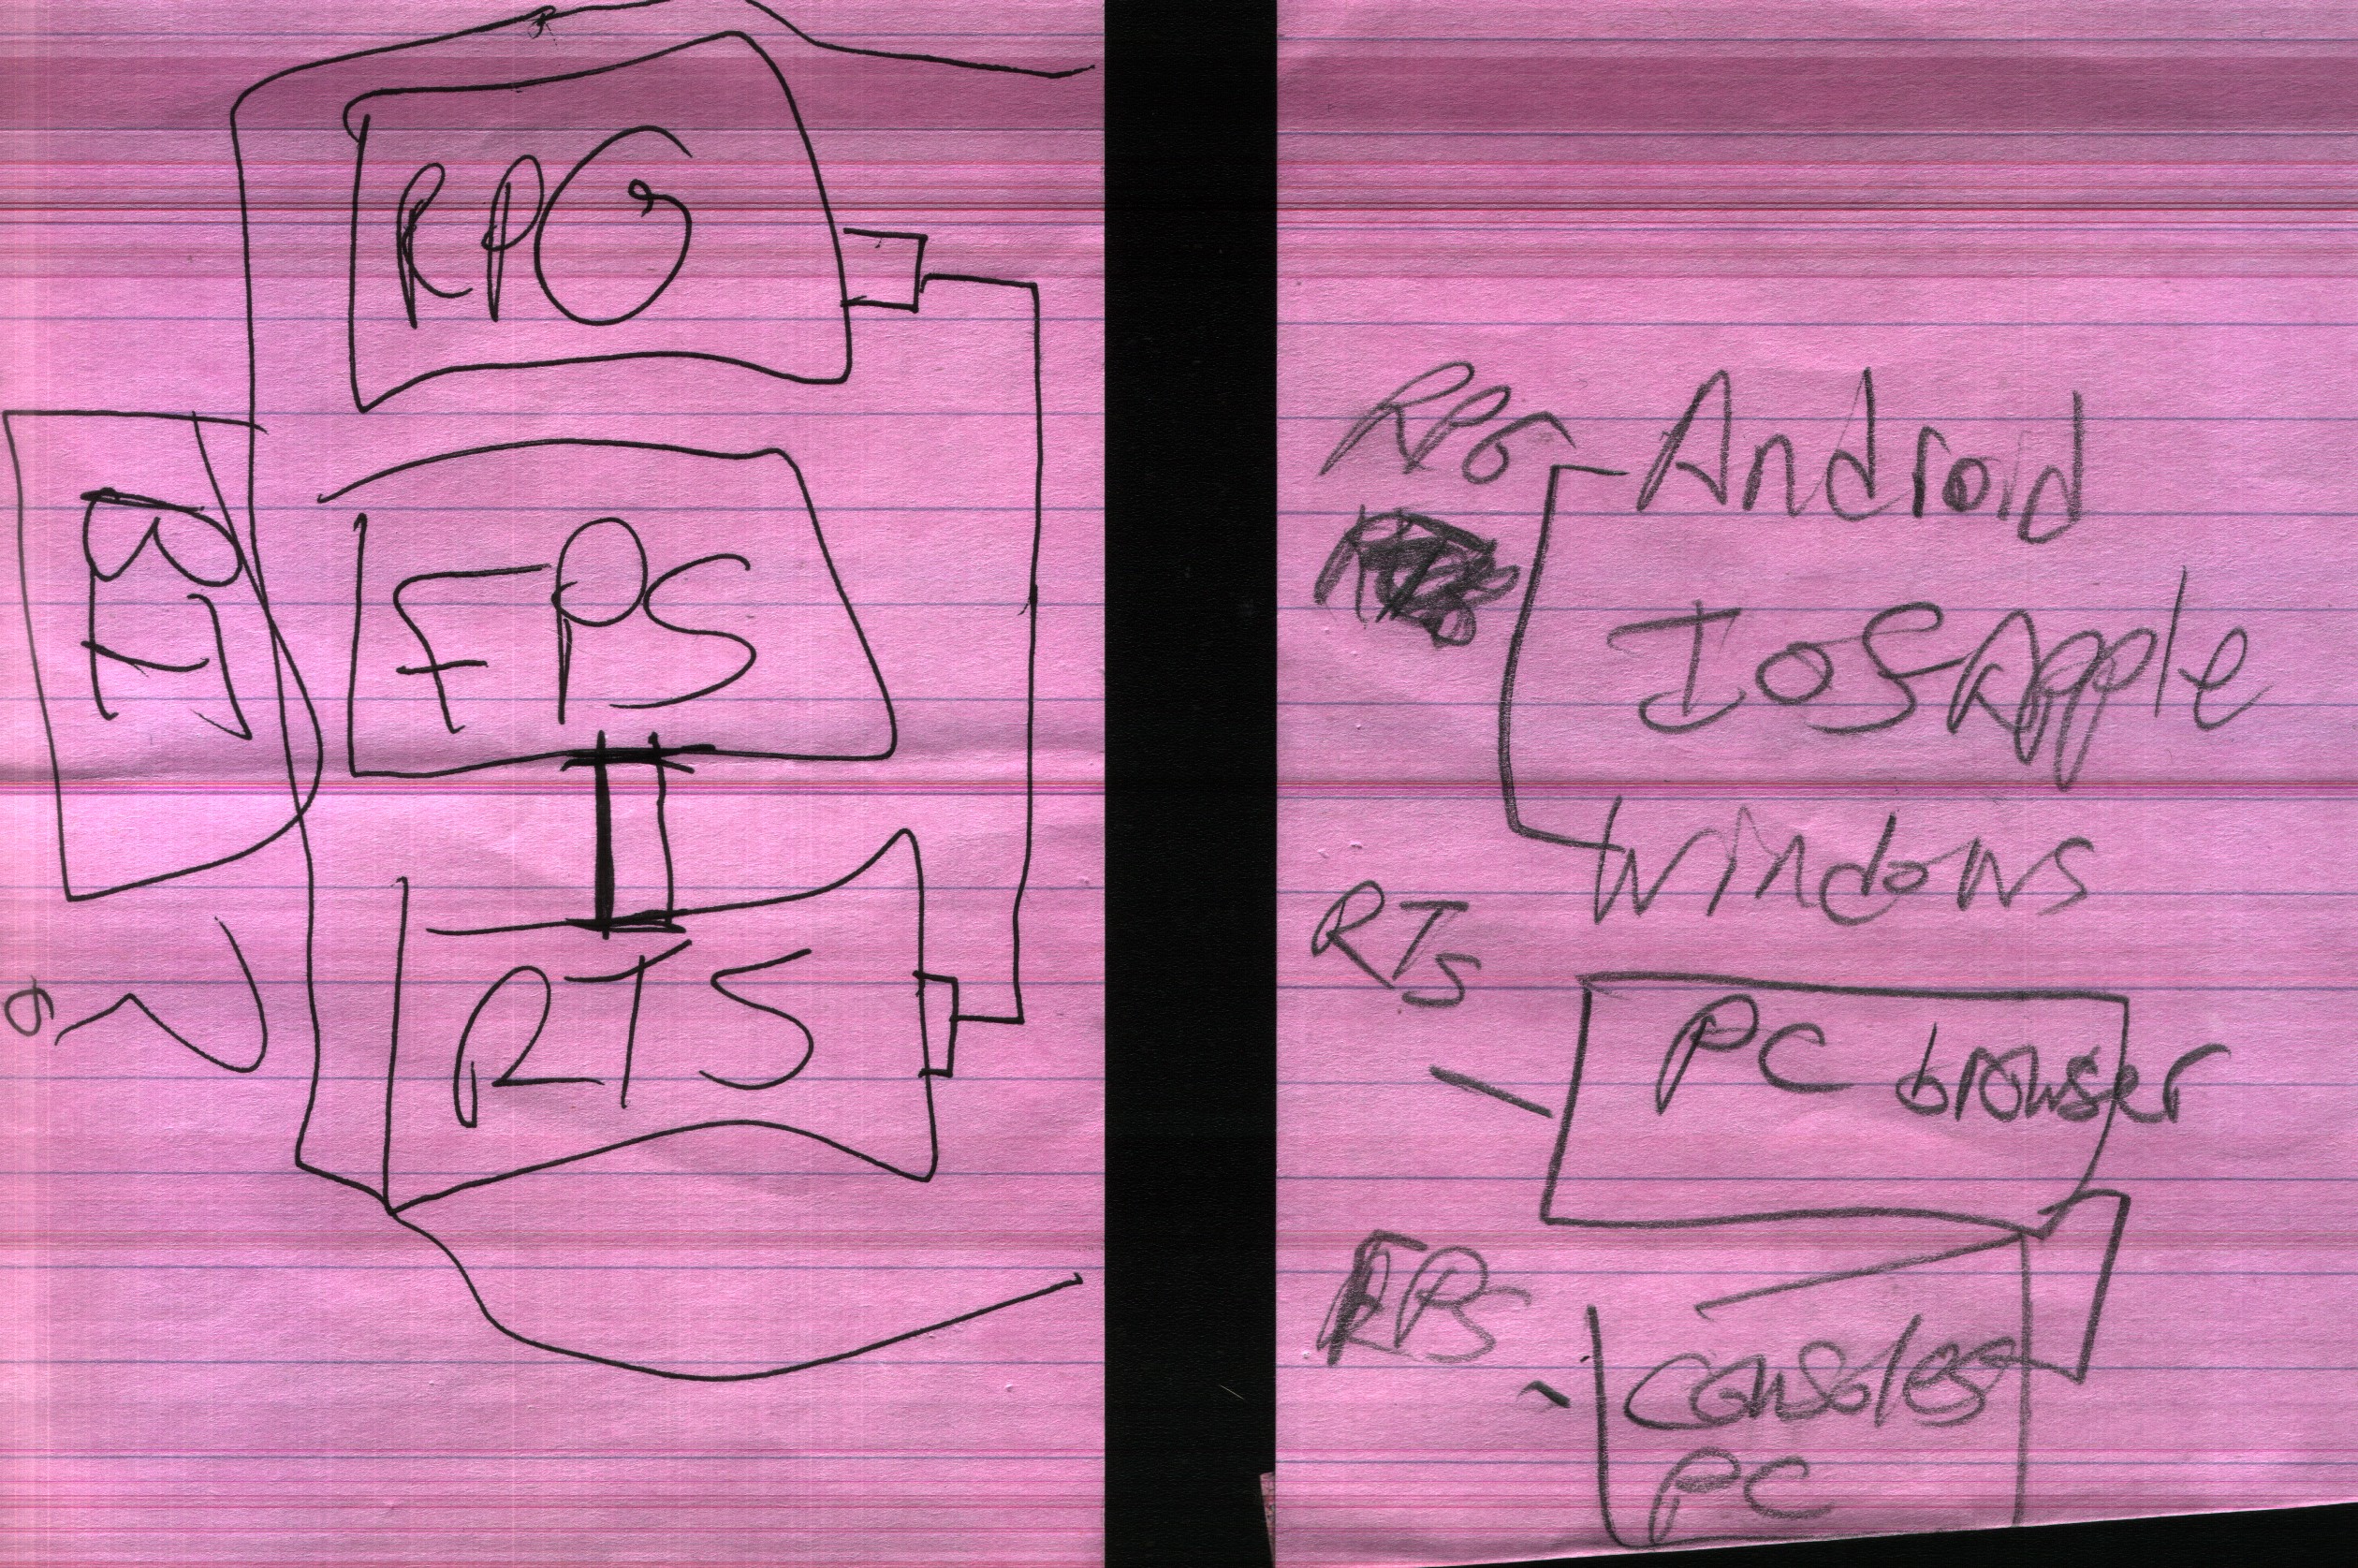 RPG
FPS
RTS
RPG
Android
IOS Apple
Windows
RTS
PC browser
FPS
consoles
PC